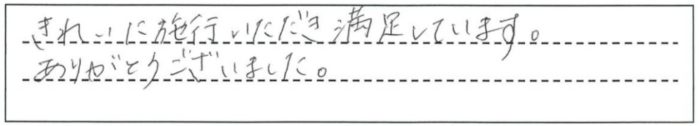 きれいに施行いただき満足しています。
ありがとうございました。